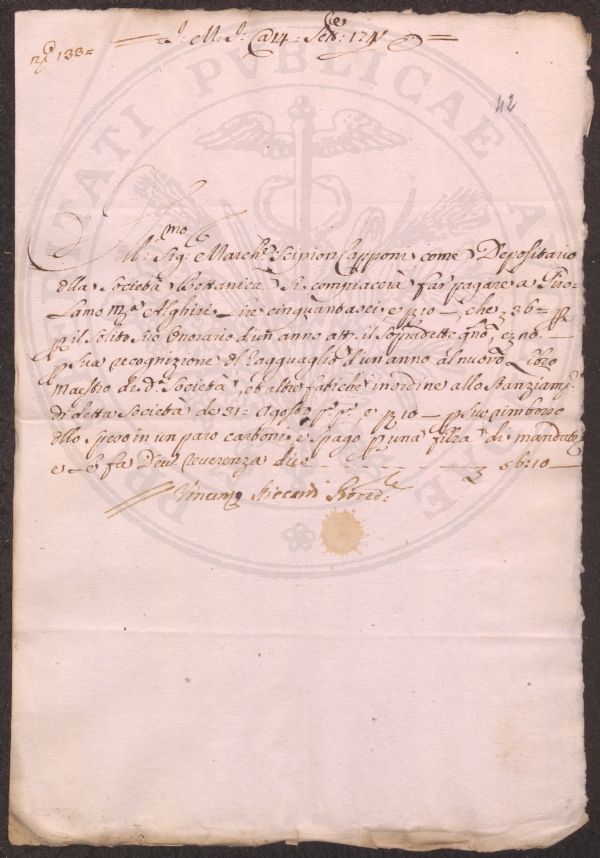 J. M. J. @ 14 Sett.re 174
n.o 133 =
42
Ill.mo
Sig.r March.e Scipion Capponi come Depositario
della Società Bottanica si compiacerà far' pagare a Giro-
lamo M.a Alghisi lire cinquantasei e 10 —, che 36 = p
p il solito suo Onorario d'un anno att.o il sopradetto gno, e 20. —
p sua recognizione del Ragguaglio d'un anno al nuovo Libro
Maestro di d.a Società, et altre fatiche in ordine allo Stanziam.to
di detta Società de 31 = Agosto p.o p.o e 10 — p suo rimborso
dello speso in un paro cartoni e spago p una filza di mandati
e le fa Dev. reverenza dico 56: 10 —
Vincenzo Riccardi Proved.re
PVBLICAE